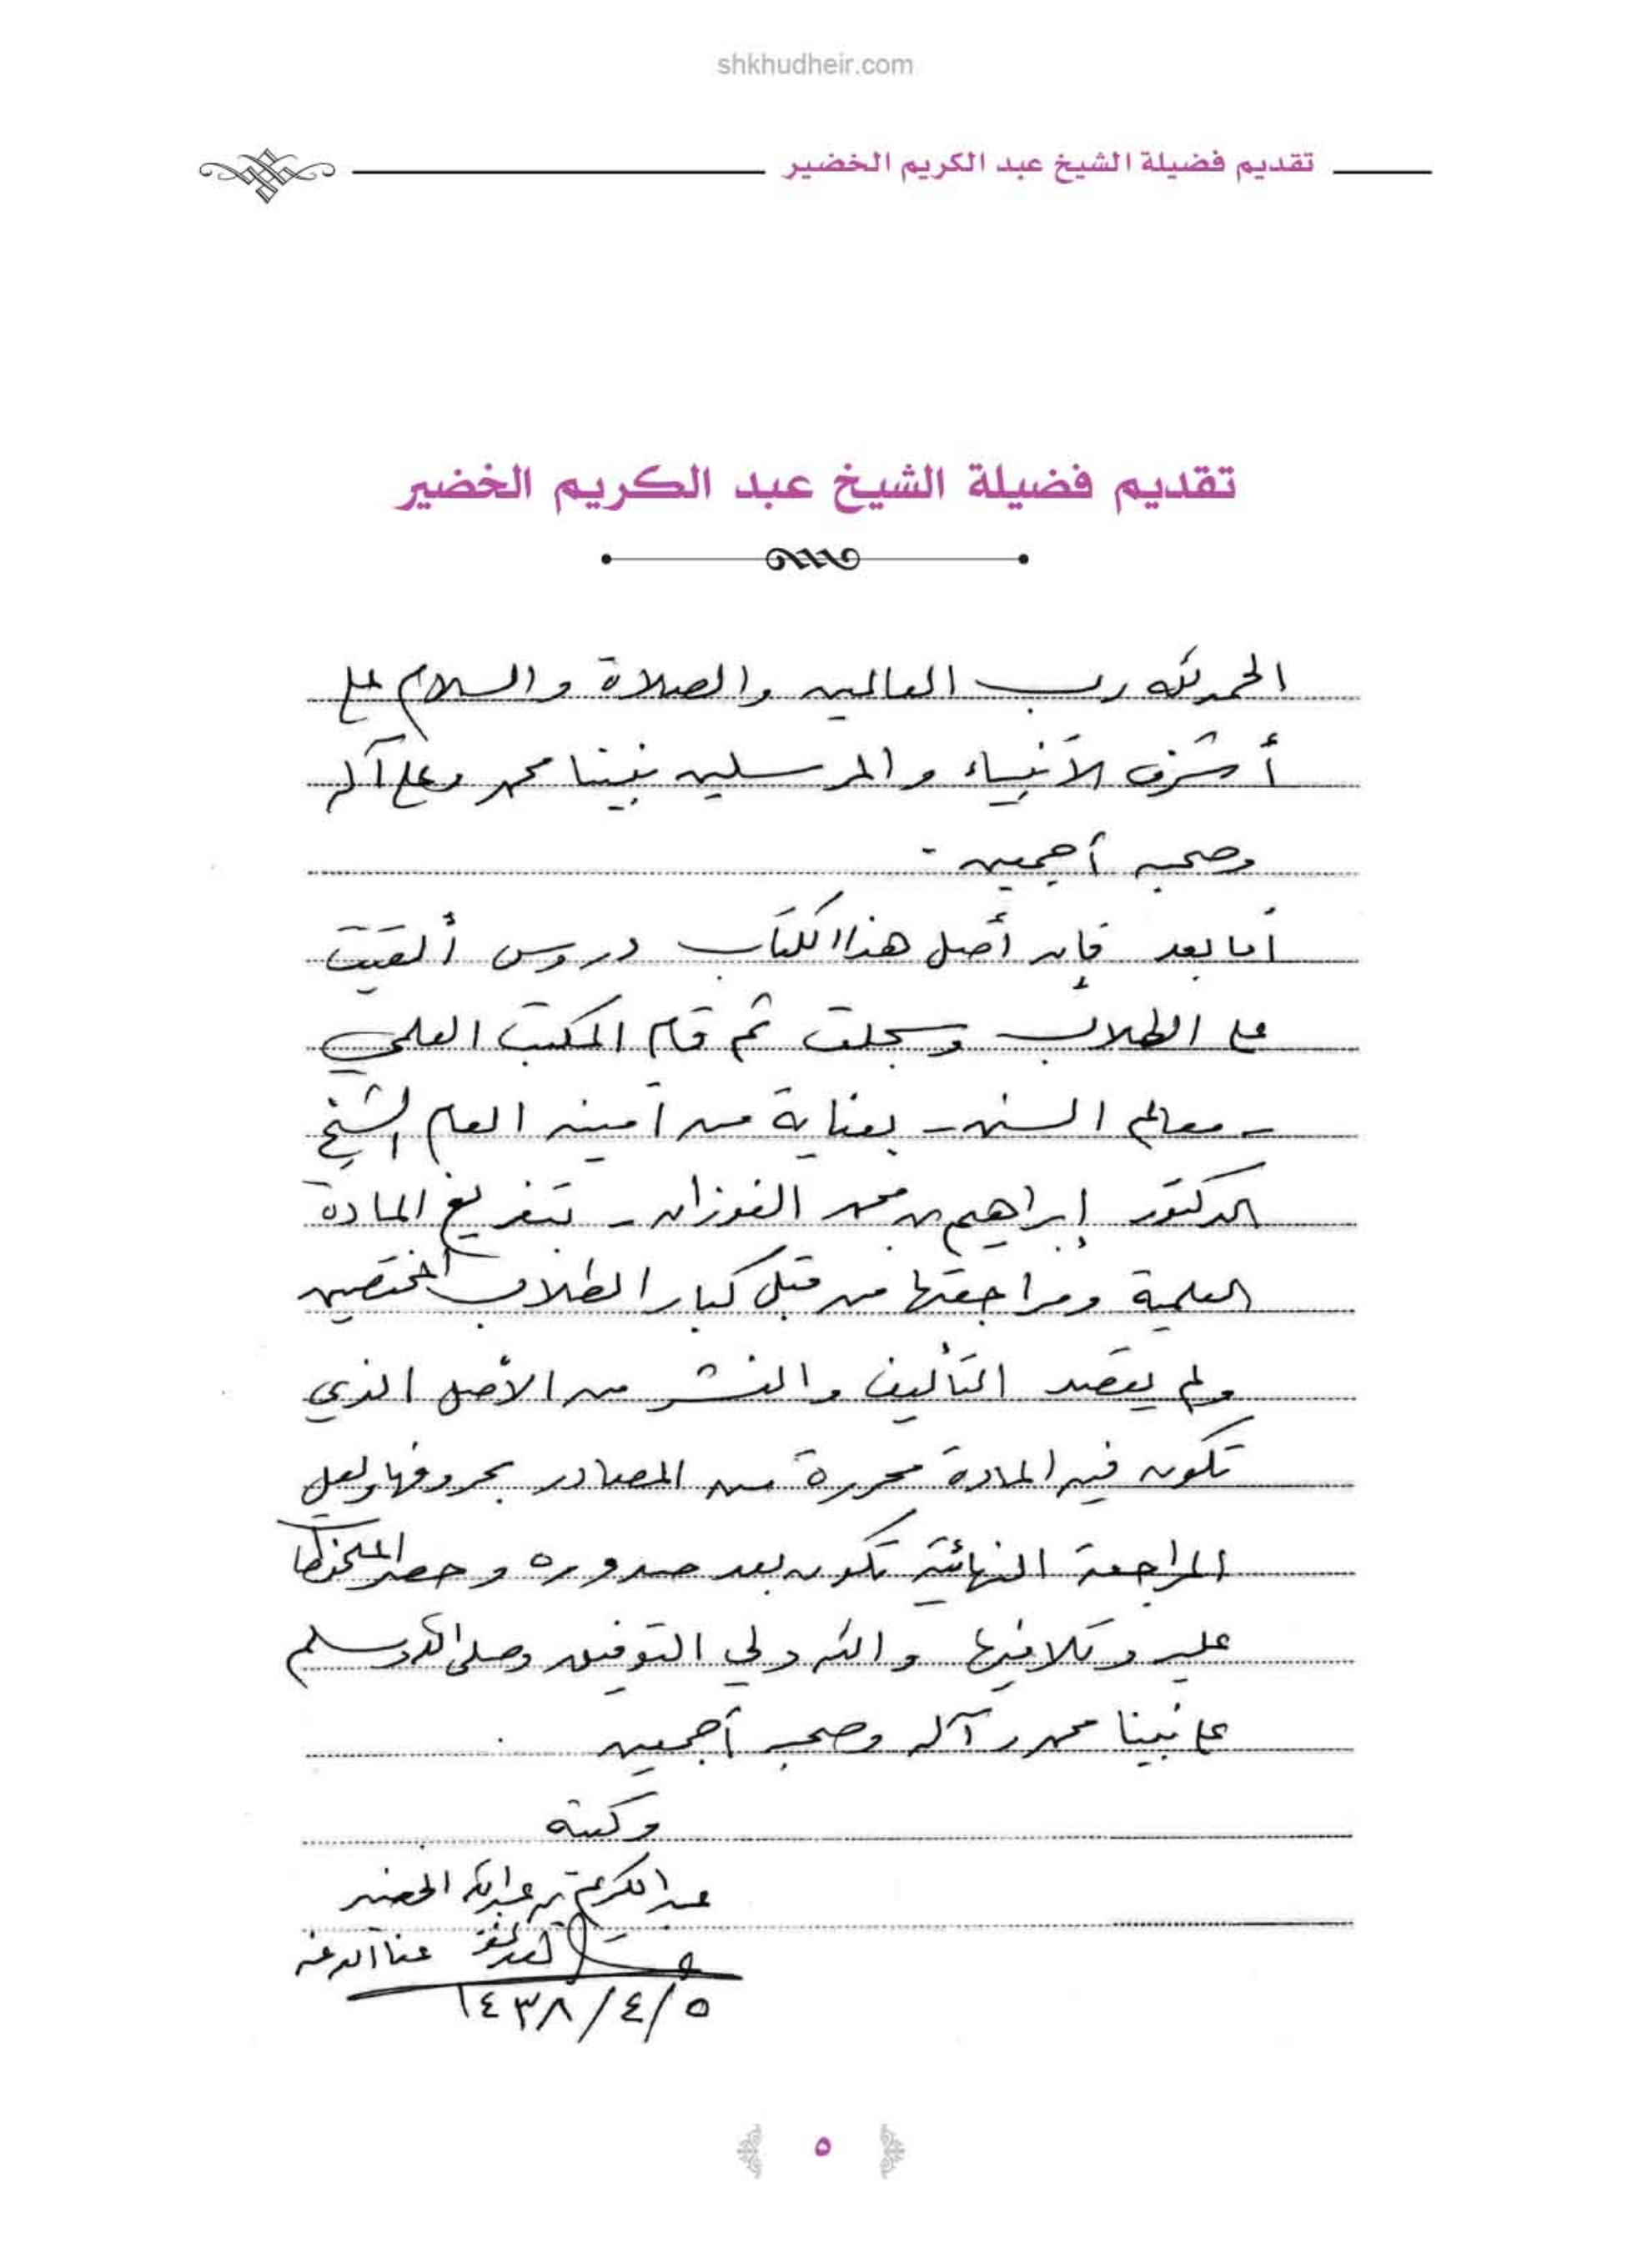 shkhudheir.com
تقديم فضيلة الشيخ عبد الكريم الخضير
تقديم فضيلة الشيخ عبد الكريم الخضير
الحمد لله رب العالمين والصلاة والسلام على
أشرف الأنبياء والمرسلين نبينا محمد وعلى آله
وصحبه أجمعين.
أما بعد فإن أصل هذا الكتاب دروس ألقيت
على الطلاب وسجلت ثم قام المكتب العلمي
- معالم السنن - بعناية من أمينه العام الشيخ
الدكتور إبراهيم بن محمد الفوزان - بتفريغ المادة
العلمية ومراجعتها من قبل كبار الطلاب المختصين
ولم يقصد التأليف والنشر من الأصل الذي
تكون فيه المادة محررة من المصادر بحروفها ولعل
المراجعة النهائية تكون بعد صدوره وحصر الملحوظات
عليه وتلافيها والله ولي التوفيق وصلى الله وسلم
على نبينا محمد وآله وصحبه أجمعين
وكتبه
عبد الكريم بن عبد الله الخضير
عفا الله عنه
١٤٣٨/٤/٥
٥